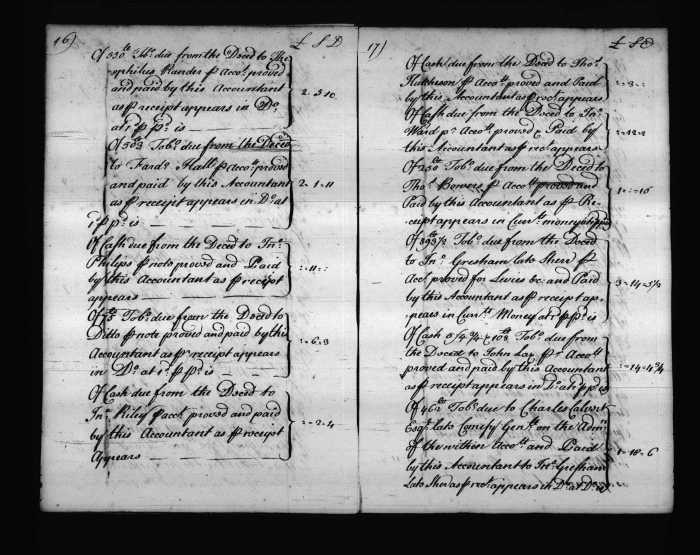 16)
£ S D
Of 550lb Tobo due from the Deced to The
ophilus Rander ℔ Accot proved
and paid by this Accountant
as ℔ receipt appears in Do
at 1d ℔ ℔ is
2..5 10
Of 503 Tobo due from the Deced
to Fardo Hall ℔ Accot proved
and paid by this Accountant
as ℔ receipt appears in Do at
1d ℔ ℔ is
2..1..11
Of Cash due from the Deced to Jno
Philips ℔ note proved and Paid
by this Accountant as ℔ receipt
appears
"..11.."
Of 75 Tobo due from the Deced to
Ditto ℔ note proved and paid by this
Accountant as ℔ receipt appears
in Do at 1d ℔ ℔ is
"..6..3
Of Cash due from the Deced to
Jno Riley ℔ accot proved and paid
by this Accountant as ℔ receipt
Appears
"..2..4
17)
£ S D
Of Cash due from the Deced to Thos
Hutcheson ℔ Accot proved and Paid
by this Accountant as ℔ rect appears
"..3.."
Of Cash due from the Deced to Jno
Ward pr Accot proved & Paid by
this Accountant as ℔ rect appears
Of 250 Tobo due from the Deced to
Thos Bowers ℔ Accot proved and
Paid by this Accountant as ℔ Re-
ceipt appears in Currt money
1.."..10
Of 893 1/2 Tobo due from the Deced
to Jno Gresham late Sherr ℔
Accot proved for Levies &c and Paid
by this Accountant as ℔ receipt ap-
pears in Currt Money at 1d ℔ ℔ is
3..14..5 1/2
Of Cash 5/4 3/4 & 108 Tobo due from
the Deced to John Lay ℔ Accot
proved and paid by this Accountant
as ℔ receipt appears in Do at 1d ℔ is
"..14..4 3/4
Of 462 Tobo due to Charles Calvert
Esqr late Comissy Genl on the Admn
of the within Accots and Paid
by this Accountant to Jno Gresham
Late Sher as ℔ rect appears in Do at Do is
1..18..6